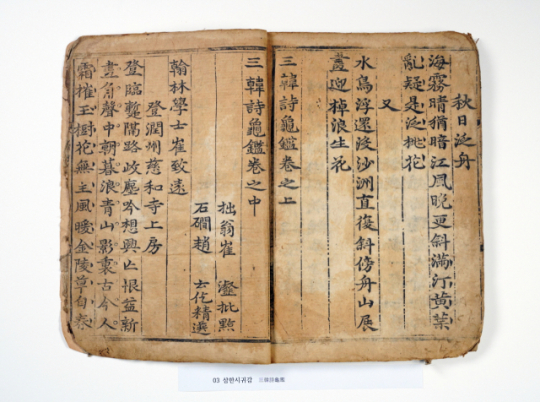 秋日泛舟
海霧晴猶暗江風晩更斜滿汀黃葉
亂疑是泛桃花
又
水鳥浮還沒沙洲直復斜傍舟山展
畫迎棹浪生花
三韓詩龜鑑卷之上
三韓詩龜鑑卷之中
拙翁崔 瀣批點
石磵趙 云仡精選
翰林學士崔致遠
登潤州慈和寺上房
登臨蹔隔路歧塵吟想興亡恨益新
畫角聲中朝暮浪青山影裏古今人
霜摧玉樹花無主風暖金陵草自春
03 삼한시귀감 三韓詩龜鑑